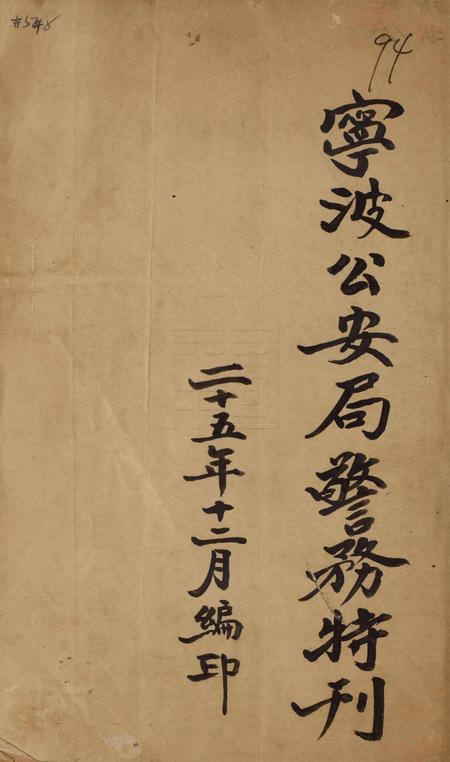 94
寧波公安局警務特刊
二十五年十二月編印